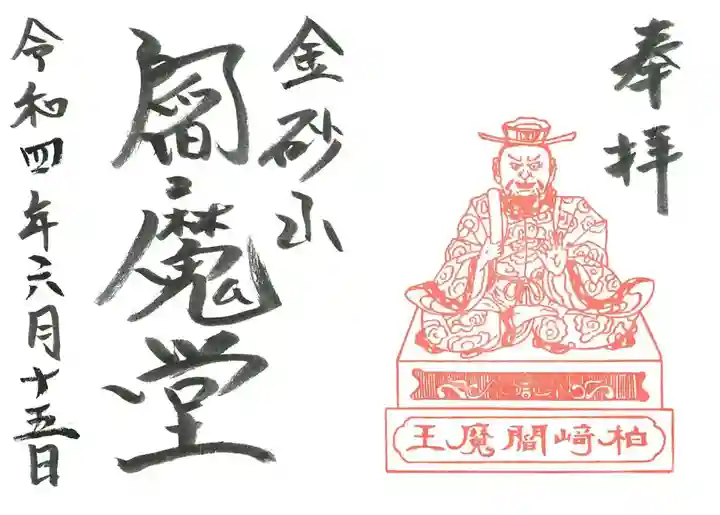 奉拝
柏﨑閻魔王
金砂山
閻魔堂
令和四年六月十五日